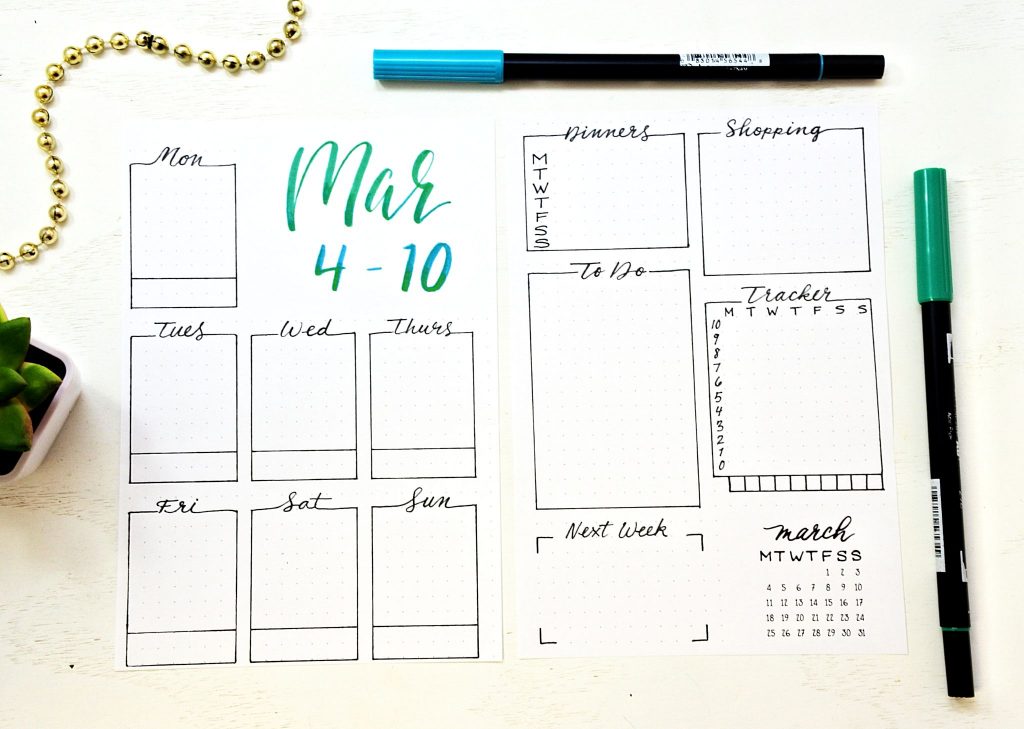 Mon
Mar
4 - 10
Tues Wed Thurs
Fri Sat Sun
Dinners
M
T
W
T
F
S
S
Shopping
To Do
Tracker
M T W T F S S
10
9
8
7
6
5
4
3
2
1
0
Next Week
march
M T W T F S S
1 2 3
4 5 6 7 8 9 10
11 12 13 14 15 16 17
18 19 20 21 22 23 24
25 26 27 28 29 30 31